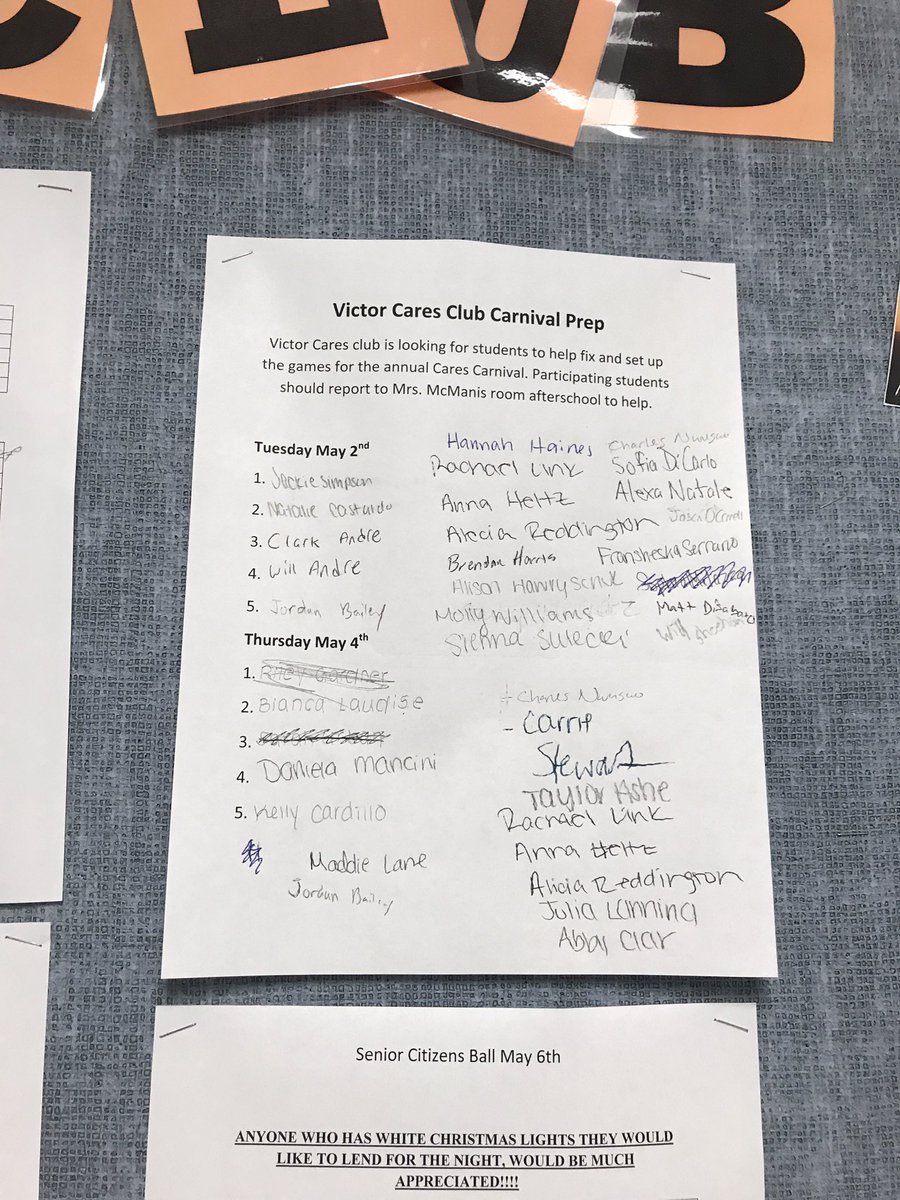 CLUB
Victor Cares Club Carnival Prep
Victor Cares club is looking for students to help fix and set up
the games for the annual Cares Carnival. Participating students
should report to Mrs. McManis room afterschool to help.
Tuesday May 2nd
1. Jackie Simpson
2. Natalie Castaldo
3. Clark Andre
4. Will Andre
5. Jordan Bailey
Hannah Haines
Rachael Link
Anna Heltz
Alecia Reddington
Brendan Harris
Alison
Molly Williams
Sienna
Charles
Sofia DiCarlo
Alexa Natale
Fransheska Serrano
Matt
Will
Thursday May 4th
1. Riley Gardner
2. Bianca Laudise
3.
4. Daniela Mancini
5. Kelly Cardillo
Maddie Lane
Jordan Bailey
Charles
- Carrie
Stewart
Taylor Ashe
Rachael Link
Anna Heltz
Alicia Reddington
Julia Lanning
Abby Clar
Senior Citizens Ball May 6th
ANYONE WHO HAS WHITE CHRISTMAS LIGHTS THEY WOULD
LIKE TO LEND FOR THE NIGHT, WOULD BE MUCH
APPRECIATED!!!!